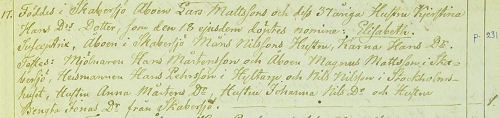 17. Föddes i Skabersjö Åboen Lars Mattssons och dess 37 åriga Hustru Kjerstina
Hans Drs Dotter, som den 18 ejusdem döptes nomine: Elisabeth. p. 231
Åboen i Skabersjö Måns Nilsons Hustru, Karna Hans Dr.
Mjölnaren Hans Mårtenson och Åboen Magnus Mattson i Ska-
bersjö, Husmannen Hans Pehrsson i Hyltarp och Nils Nilsson i Stockholms-
huset, Hustru Anna Mårtens Dr, Hustru Johanna Nils Dr och Hustru
Bengta Jönas Dr från Skabersjö.